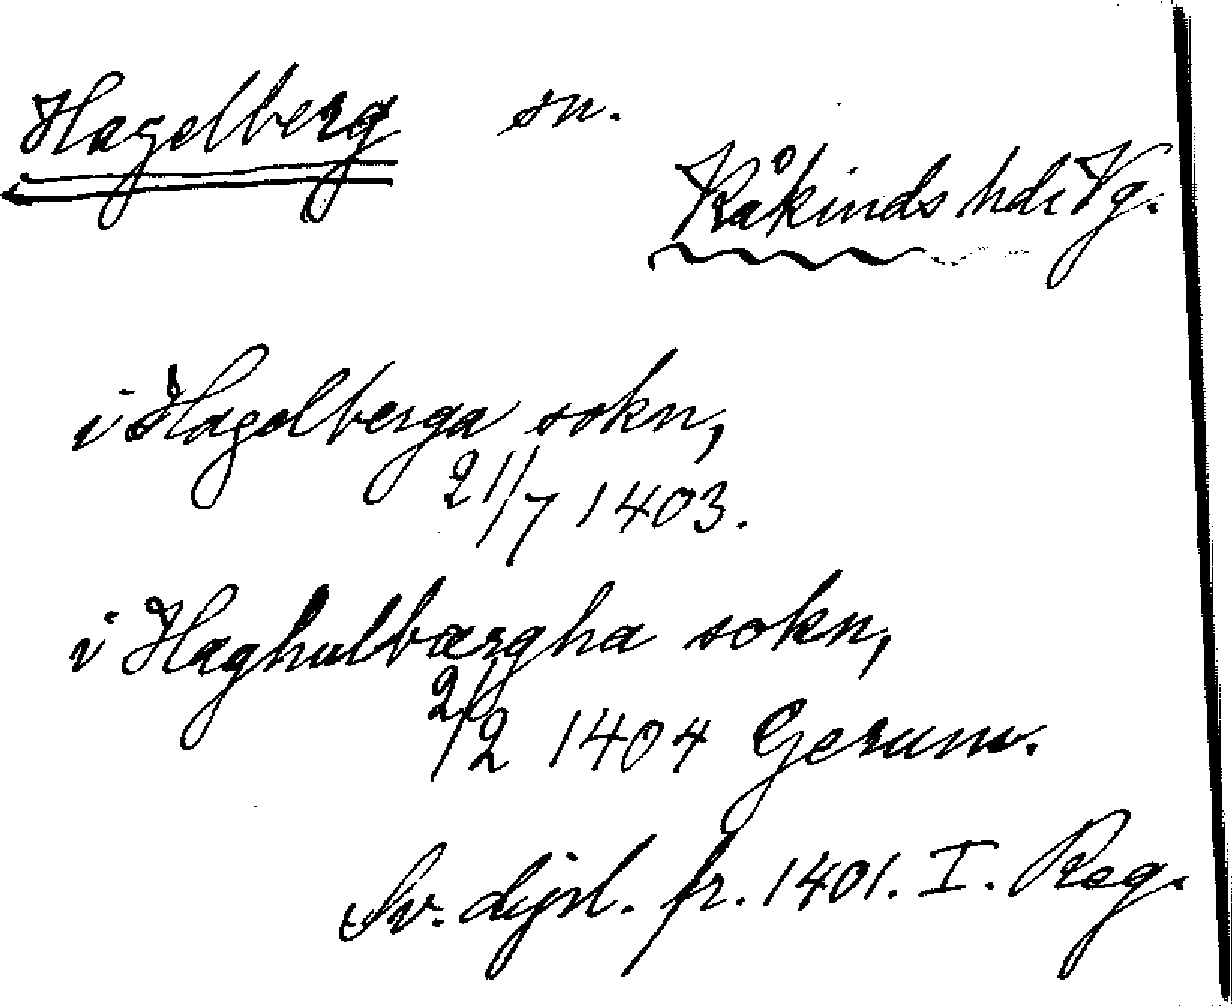 Hagelberg sn.
Kåkinds hd. Vg.
i Hagelberga sokn,
21/7 1403.
i Haghulbærgha sokn,
2/2 1404 Gerum.
Sv. dipl. fr. 1401. I. Reg.